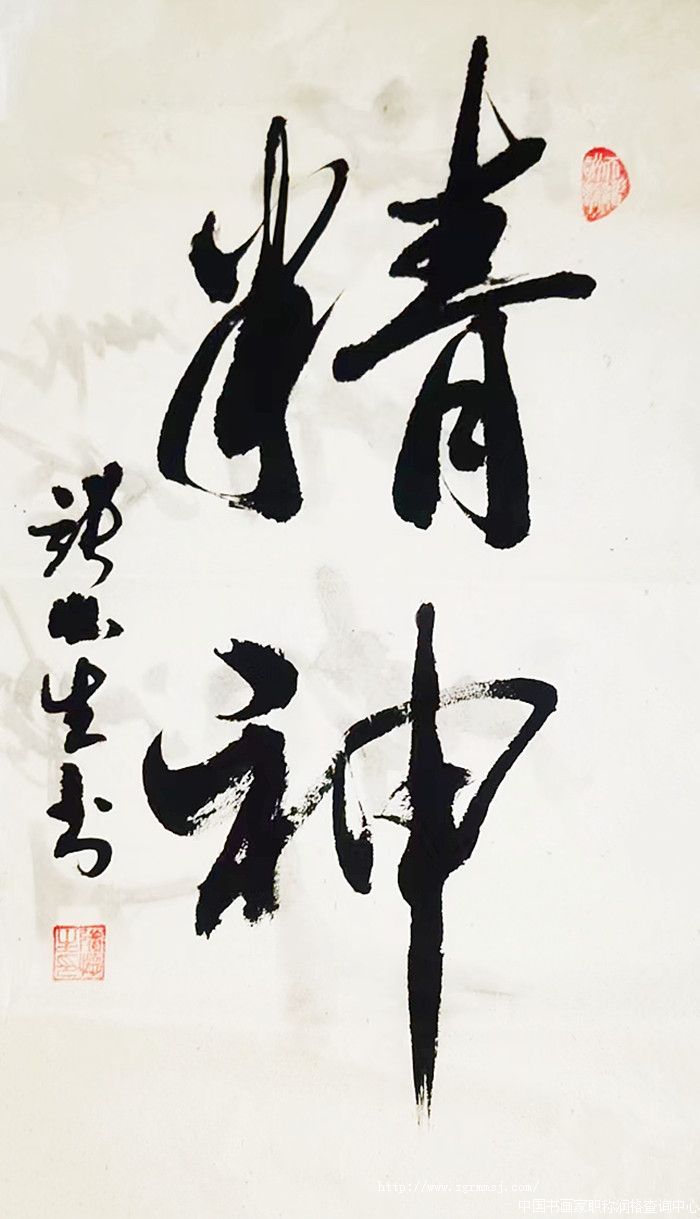 精神
生书
http://www.zgrmmsj.com/
中国书画家职称润格查询中心